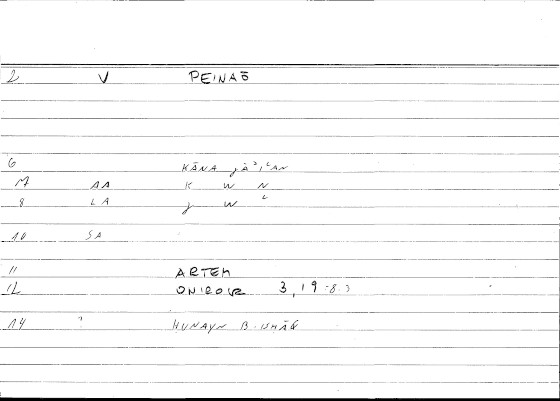 2 V PEINAŌ
6 KĀNA jāʾiʿAN
M AA K W N
8 LA j W ʿ
10 SA
11 ARTEM
12 ONIROCR 3, 19
14 ? HUNAYN B. ISHĀQ